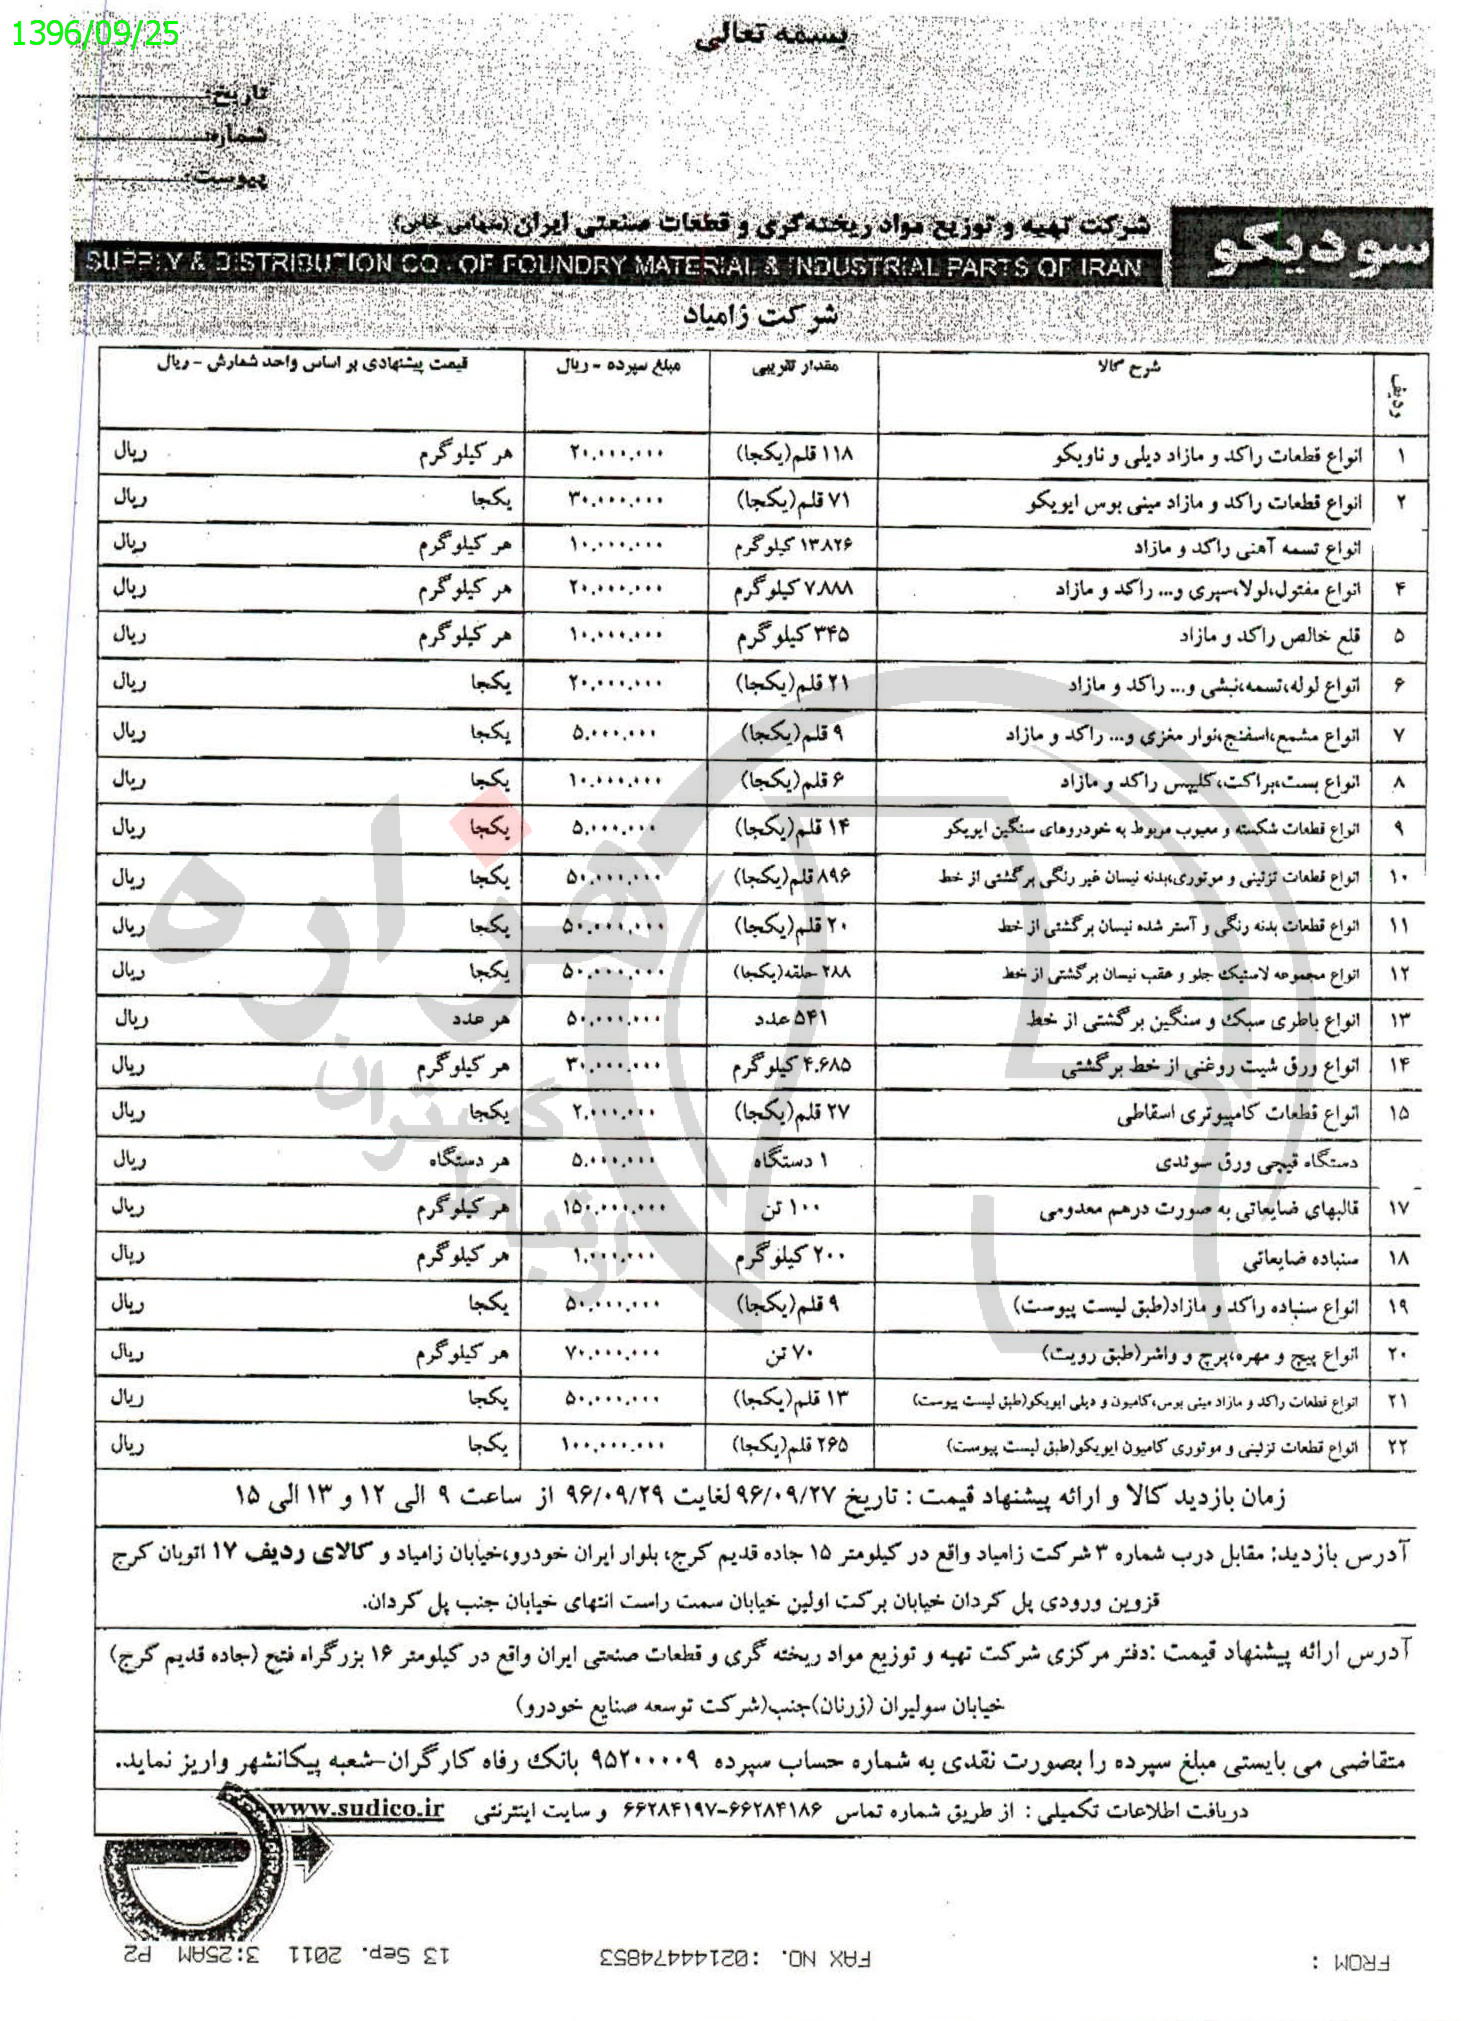 1396/09/25
بسمه تعالی
تاریخ:
شماره:
پیوست:
سودیکو
شرکت تهیه و توزیع مواد ریخته‌گری و قطعات صنعتی ایران (سهامی خاص)
SUPPLY & DISTRIBUTION CO. OF FOUNDRY MATERIAL & INDUSTRIAL PARTS OF IRAN
شرکت زامیاد
ردیف شرح کالا مقدار تقریبی مبلغ سپرده - ریال قیمت پیشنهادی بر اساس واحد شمارش - ریال
۱ انواع قطعات راکد و مازاد دیلی و ناویکو ۱۱۸ قلم(یکجا) ۲۰،۰۰۰،۰۰۰ هر کیلوگرم ریال
۲ انواع قطعات راکد و مازاد مینی بوس ایویکو ۷۱ قلم(یکجا) ۳۰،۰۰۰،۰۰۰ یکجا ریال
انواع تسمه آهنی راکد و مازاد ۱۳۸۲۶ کیلوگرم ۱۰،۰۰۰،۰۰۰ هر کیلوگرم ریال
۴ انواع مفتول،لولا،سپری و... راکد و مازاد ۷.۸۸۸ کیلوگرم ۲۰،۰۰۰،۰۰۰ هر کیلوگرم ریال
۵ قلع خالص راکد و مازاد ۳۴۵ کیلوگرم ۱۰،۰۰۰،۰۰۰ هر کیلوگرم ریال
۶ انواع لوله،تسمه،نبشی و... راکد و مازاد ۲۱ قلم(یکجا) ۲۰،۰۰۰،۰۰۰ یکجا ریال
۷ انواع مشمع،اسفنج،نوار مغزی و... راکد و مازاد ۹ قلم(یکجا) ۵،۰۰۰،۰۰۰ یکجا ریال
۸ انواع بست،براکت،کلیپس راکد و مازاد ۶ قلم(یکجا) ۱۰،۰۰۰،۰۰۰ یکجا ریال
۹ انواع قطعات شکسته و معیوب مربوط به خودروهای سنگین ایویکو ۱۴ قلم(یکجا) ۵،۰۰۰،۰۰۰ یکجا ریال
۱۰ انواع قطعات تزئینی و موتوری،بدنه نیسان غیر رنگی برگشتی از خط ۸۹۶ قلم(یکجا) ۵۰،۰۰۰،۰۰۰ یکجا ریال
۱۱ انواع قطعات بدنه رنگی و آستر شده نیسان برگشتی از خط ۲۰ قلم(یکجا) ۵۰،۰۰۰،۰۰۰ یکجا ریال
۱۲ انواع مجموعه لاستیک جلو و عقب نیسان برگشتی از خط ۲۸۸ حلقه(یکجا) ۵۰،۰۰۰،۰۰۰ یکجا ریال
۱۳ انواع باطری سبک و سنگین برگشتی از خط ۵۴۱ عدد ۵۰،۰۰۰،۰۰۰ هر عدد ریال
۱۴ انواع ورق شیت روغنی از خط برگشتی ۴.۶۸۵ کیلوگرم ۳۰،۰۰۰،۰۰۰ هر کیلوگرم ریال
۱۵ انواع قطعات کامپیوتری اسقاطی ۲۷ قلم(یکجا) ۲،۰۰۰،۰۰۰ یکجا ریال
دستگاه قیچی ورق سوئدی ۱ دستگاه ۵،۰۰۰،۰۰۰ هر دستگاه ریال
۱۷ قالبهای ضایعاتی به صورت درهم معدومی ۱۰۰ تن ۱۵۰،۰۰۰،۰۰۰ هر کیلوگرم ریال
۱۸ سنباده ضایعاتی ۲۰۰ کیلوگرم ۱،۰۰۰،۰۰۰ هر کیلوگرم ریال
۱۹ انواع سنباده راکد و مازاد(طبق لیست پیوست) ۹ قلم(یکجا) ۵۰،۰۰۰،۰۰۰ یکجا ریال
۲۰ انواع پیچ و مهره،پرچ و واشر(طبق رویت) ۷۰ تن ۷۰،۰۰۰،۰۰۰ هر کیلوگرم ریال
۲۱ انواع قطعات راکد و مازاد مینی بوس،کامیون و دیلی ایویکو(طبق لیست پیوست) ۱۳ قلم(یکجا) ۵۰،۰۰۰،۰۰۰ یکجا ریال
۲۲ انواع قطعات تزئینی و موتوری کامیون ایویکو(طبق لیست پیوست) ۲۶۵ قلم(یکجا) ۱۰۰،۰۰۰،۰۰۰ یکجا ریال
زمان بازدید کالا و ارائه پیشنهاد قیمت : تاریخ ۹۶/۰۹/۲۷ لغایت ۹۶/۰۹/۲۹ از ساعت ۹ الی ۱۲ و ۱۳ الی ۱۵
آدرس بازدید: مقابل درب شماره ۳ شرکت زامیاد واقع در کیلومتر ۱۵ جاده قدیم کرج، بلوار ایران خودرو،خیابان زامیاد و کالای ردیف ۱۷ اتوبان کرج
قزوین ورودی پل کردان خیابان برکت اولین خیابان سمت راست انتهای خیابان جنب پل کردان.
آدرس ارائه پیشنهاد قیمت :دفتر مرکزی شرکت تهیه و توزیع مواد ریخته گری و قطعات صنعتی ایران واقع در کیلومتر ۱۶ بزرگراه فتح (جاده قدیم کرج)
خیابان سولیران (زرنان)جنب(شرکت توسعه صنایع خودرو)
متقاضی می بایستی مبلغ سپرده را بصورت نقدی به شماره حساب سپرده ۹۵۲۰۰۰۰۹ بانک رفاه کارگران-شعبه پیکانشهر واریز نماید.
دریافت اطلاعات تکمیلی : از طریق شماره تماس ۶۶۲۸۴۱۸۶-۶۶۲۸۴۱۹۷ و سایت اینترنتی www.sudico.ir
هزاره
گسترش
ارتباط
FROM : FAX NO. :02144474853 13 Sep. 2011 3:25AM P2